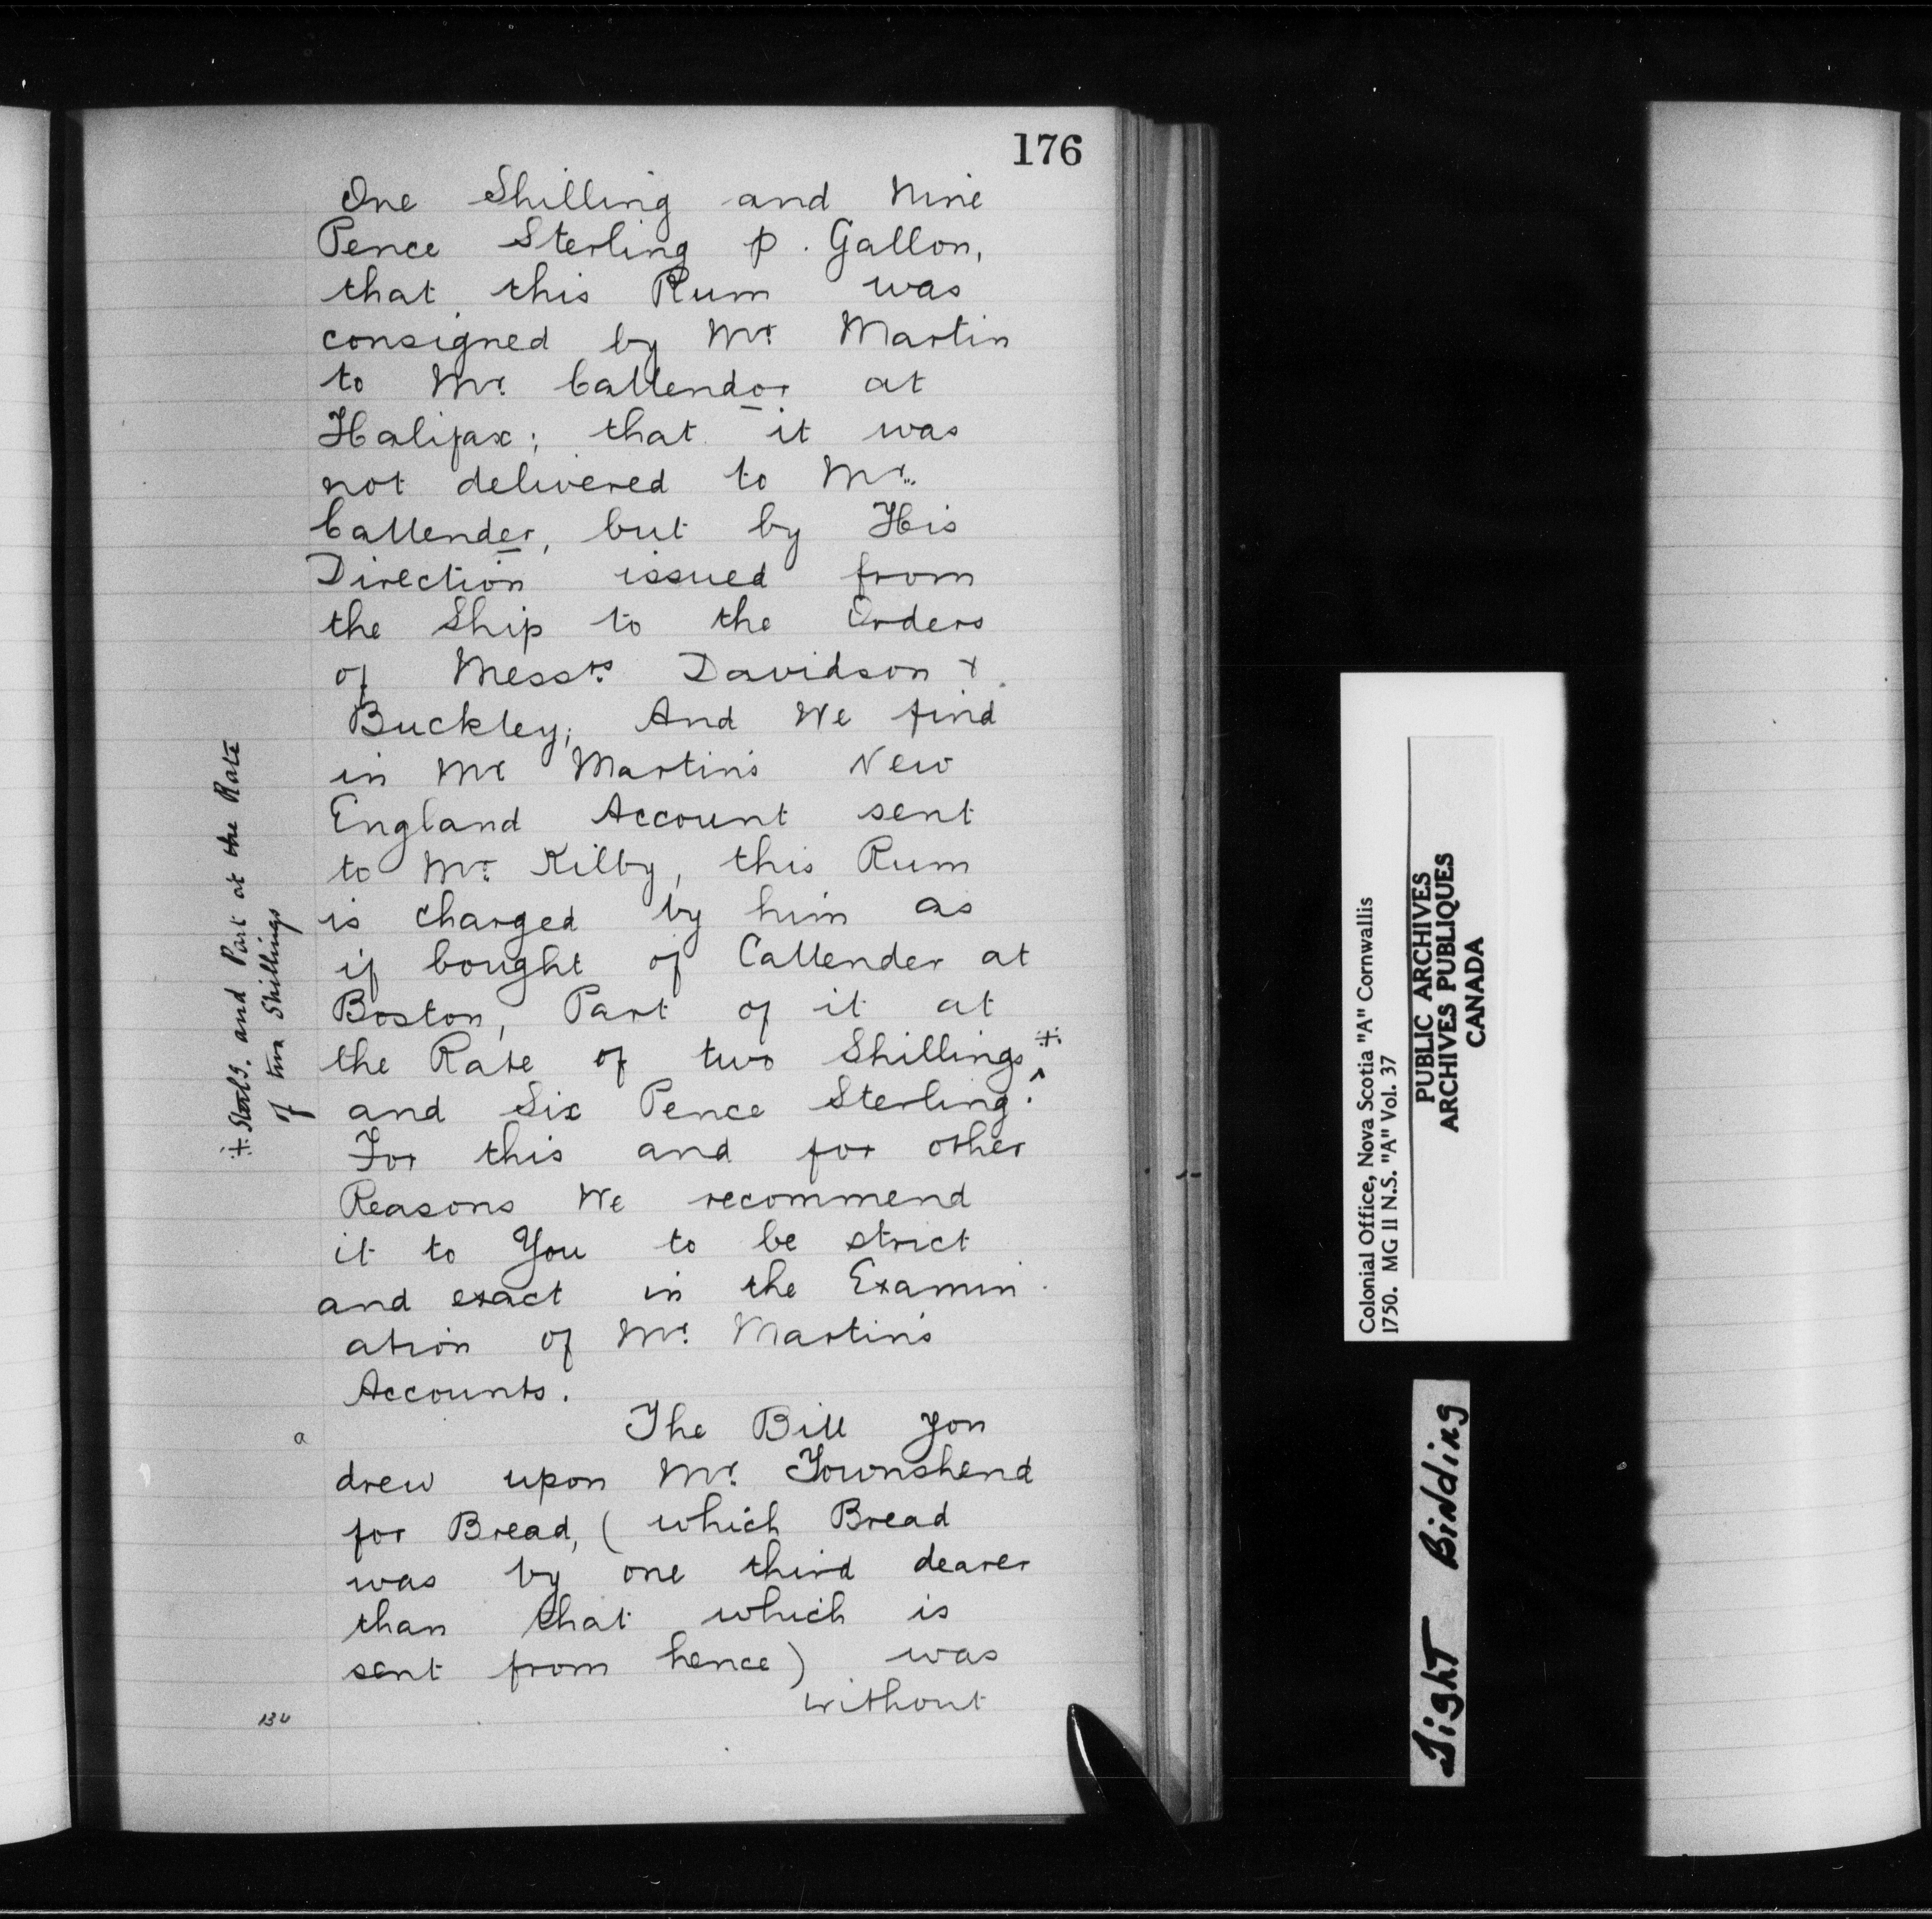 176
One Shilling and Nine
Pence Sterling p. Gallon,
that this Rum was
consigned by Mr. Martin
to Mr. Callendor at
Halifax; that it was
not delivered to Mr.
Callender, but by His
Direction issued from
the Ship to the Orders
of Messrs. Davidson &
Buckley; And We find
in Mr Martin's New
England Account sent
to Mr. Kilby, this Rum
is charged by him as
if bought of Callender at
Boston, Part of it at
the Rate of two Shillings ⁜ ^
and Six Pence Sterling.
For this and for other
Reasons We recommend
it to You to be strict
and exact in the Examin
ation of Mr. Martin's
Accounts.
The Bill you
a
drew upon Mr. Townshend
for Bread, (which Bread
was by one third dearer
than that which is
sent from hence) was
without
⁜ Sterlg. and Part at the Rate
of two Shillings
Colonial Office, Nova Scotia "A" Cornwallis
1750. MG II N.S. "A" Vol. 37
PUBLIC ARCHIVES
ARCHIVES PUBLIQUES
CANADA
Tight Binding